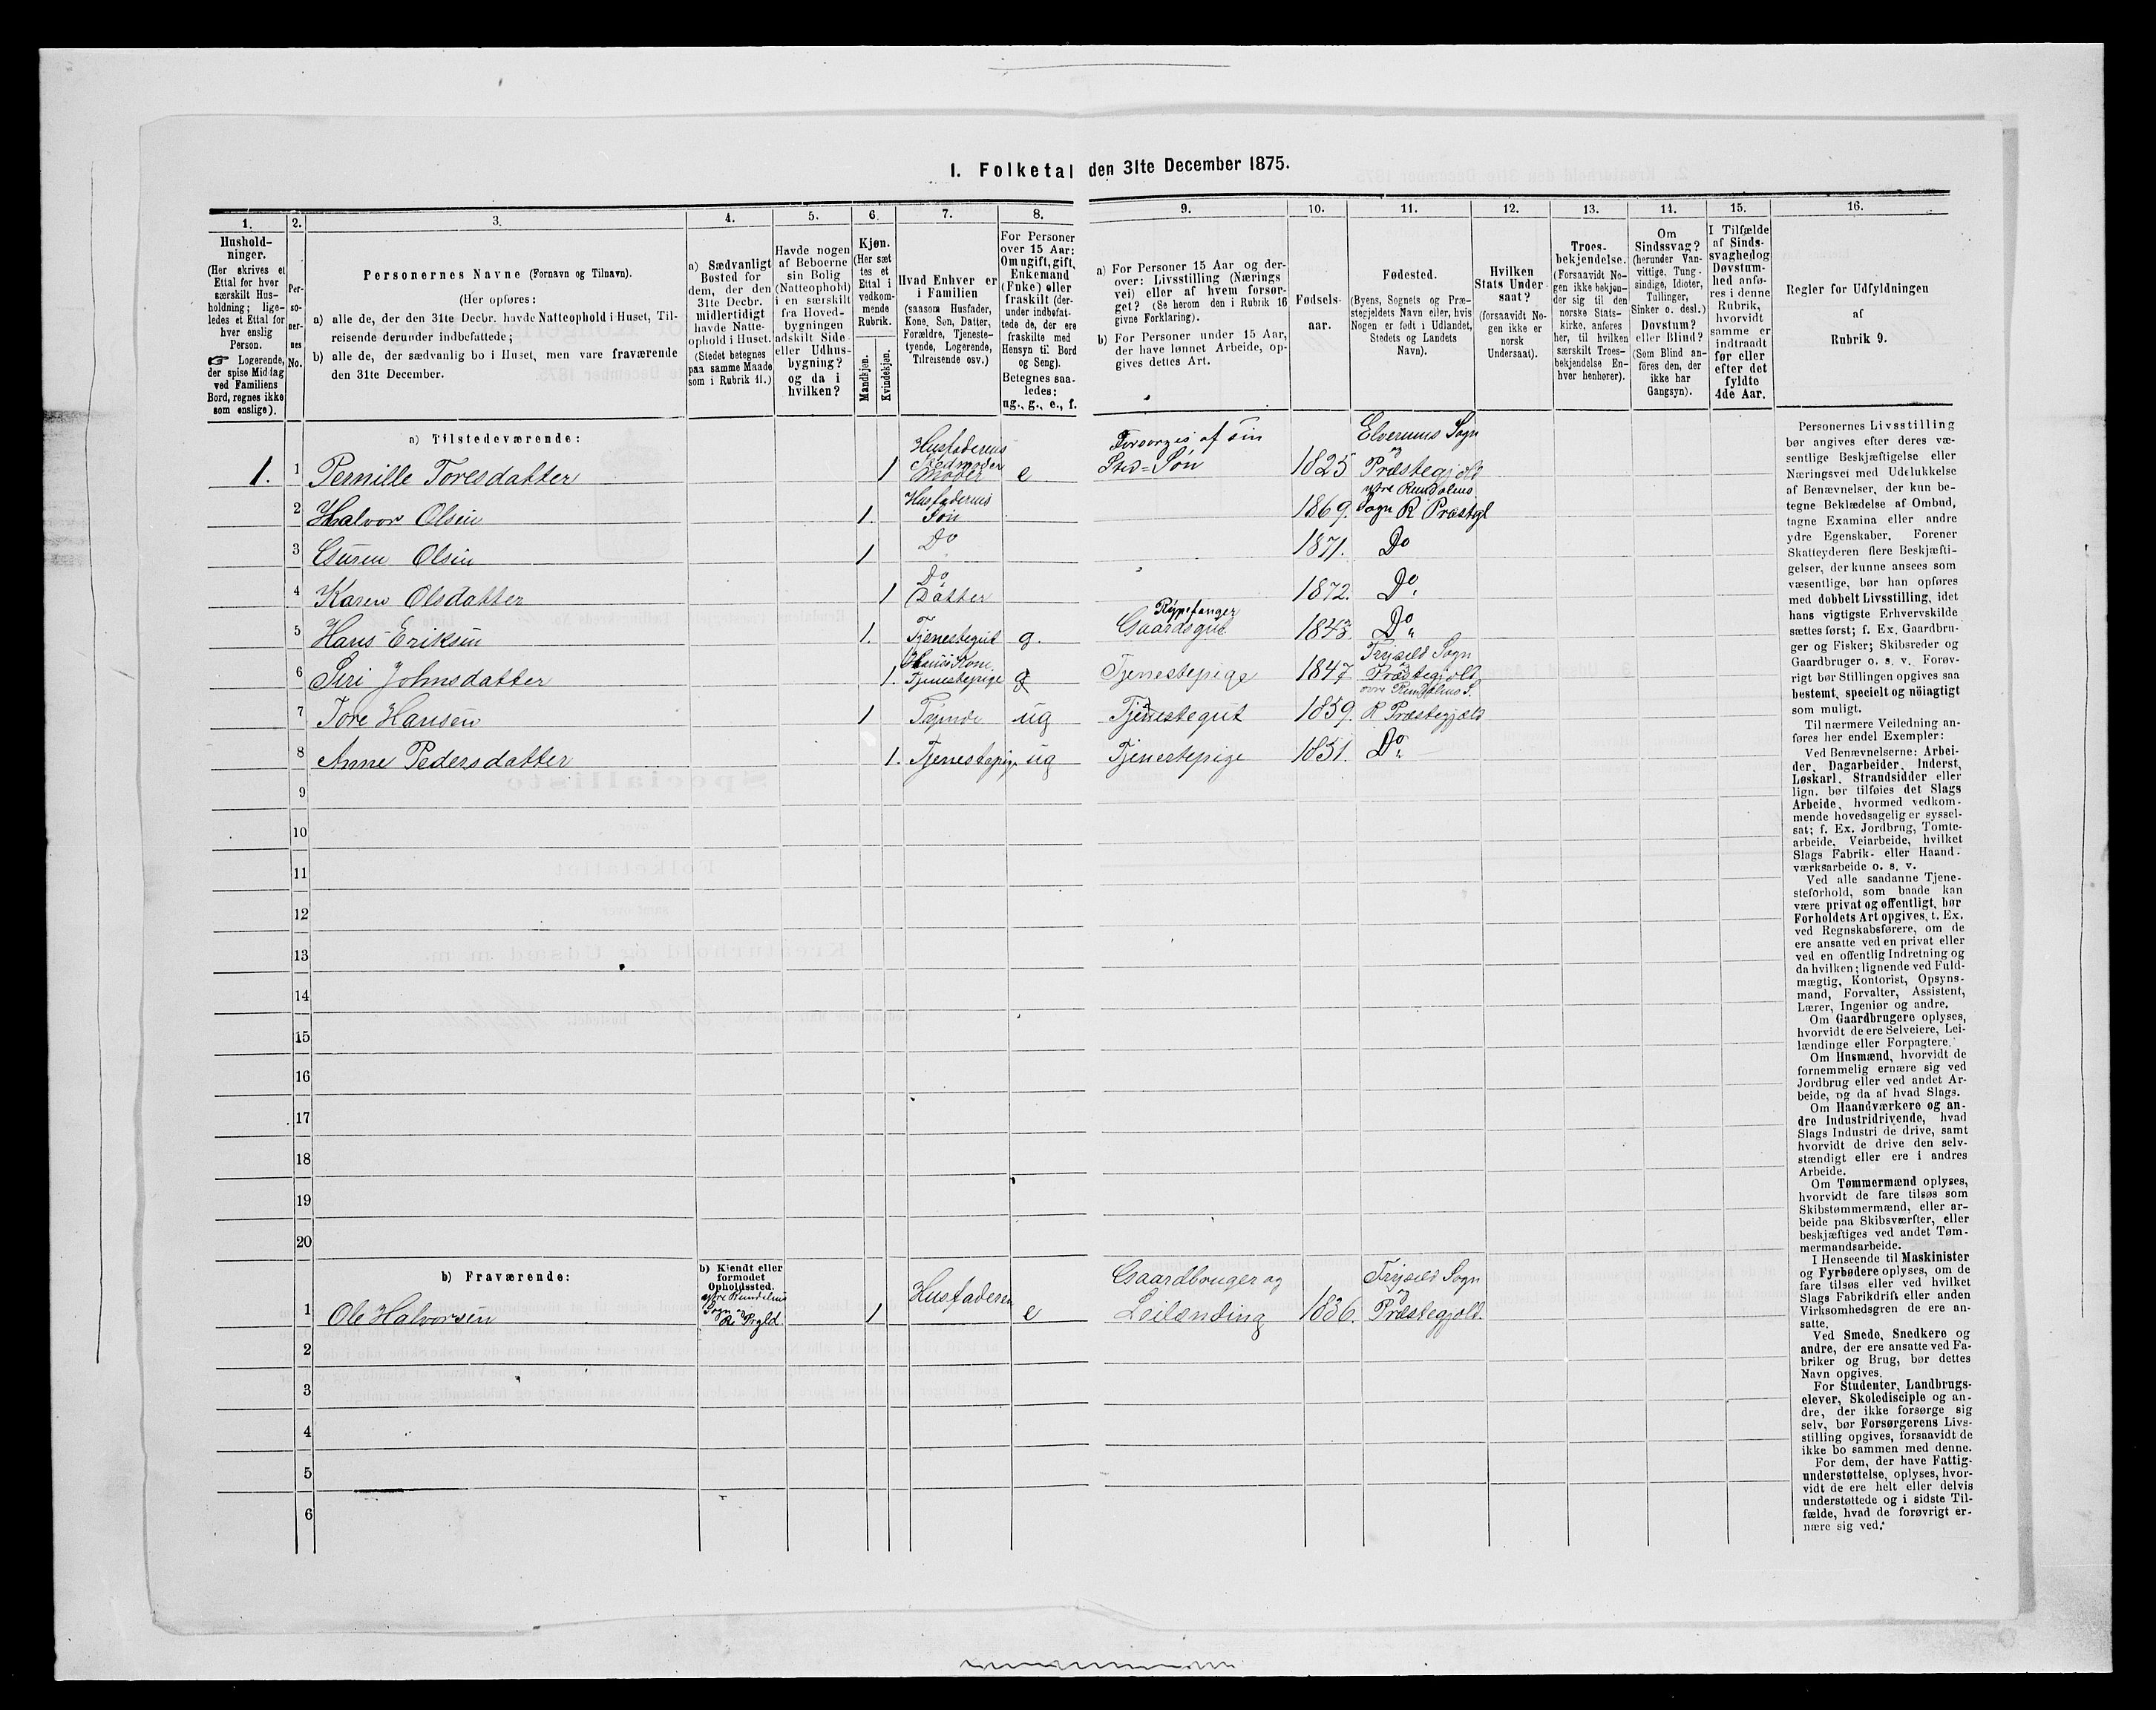 1. Folketal den 31te December 1875.
1. 2. 3. 4. 5. 6. 7. 8. 9. 10. 11. 12. 13. 14. 15. 16.
Hushold-
ninger.
(Her skrives et
Ettal for hver
særskilt Hus-
holdning; lige-
ledes et Ettal for
hver enslig
Person.
☞ Logerende,
der spise Middag
ved Familiens
Bord, regnes ikke
som enslige).
Per-
so-
ner-
nes
No.
Personernes Navne (Fornavn og Tilnavn).
(Her opføres:
a) alle de, der den 31te Decbr. havde Natteophold i Huset, Til-
reisende derunder indbefattede;
b) alle de, der sædvanlig bo i Huset, men vare fraværende
den 31te December.
a) Sædvanligt
Bosted for
dem, der den
31te Decbr.
midlertidigt
havde Natte-
ophold i Huset.
(Stedet betegnes
paa samme Maade
som i Rubrik 11.)
Havde nogen
af Beboerne
sin Bolig
(Natteophold)
i en særskilt
fra Hoved-
bygningen
adskilt Side-
eller Udhus-
bygning?
og da i
hvilken?
Kjøn.
(Her sæt
tes et
Ettal i
vedkom-
mende
Rubrik.
Mandkjøn.
Kvindekjøn.
Hvad Enhver er
i Familien
(saasom Husfader,
Kone, Søn, Datter,
Forældre, Tjeneste-
tyende, Logerende,
Tilreisende osv.)
For Personer
over 15 Aar:
Om ugift, gift,
Enkemand
(Enke) eller
fraskilt (der-
under indbefat-
tede de, der ere
fraskilte med
Hensyn til Bord
og Seng).
Betegnes saa-
ledes:
ug., g., e., f.
a) For Personer 15 Aar og der-
over: Livsstilling (Nærings
vei) eller af hvem forsør-
get? (Se herom den i Rubrik 16
givne Forklaring).
b) For Personer under 15 Aar,
der have lønnet Arbeide, op-
gives dettes Art.
Fødsels-
aar.
Fødested.
(Byens, Sognets og Præ-
stegjeldets Navn eller, hvis
Nogen er født i Udlandet,
Stedets og Landets
Navn).
Hvilken
Stats Under-
saat?
(forsaavidt No-
gen ikke er
norsk
Undersaat).
Troes-
bekjendelse.
(Forsaavidt No-
gen ikke bekjen-
der sig til den
norske Stats-
kirke, anføres
her, til hvilken
særskilt Troes-
bekjendelse En-
hver henhører).
Om
Sindssvag?
(herunder Van-
vittige, Tung-
sindige, Idioter,
Tullinger,
Sinker o. desl.)
Døvstum?
eller Blind?
(Som Blind an-
føres den, der
ikke har
Gangsyn).
I Tilfælde
af Sinds-
svaghed og
Døvstum-
hed anfø-
res i denne
Rubrik,
hvorvidt
samme er
indtraadt
før eller
efter det
fyldte
4de Aar.
Regler for Udfyldningen
af
Rubrik 9.
a) Tilstedeværende:
1. 1 Pernille Toresdatter 1 Husfaderens Stedmoder e Forsorges af sin Sted=Søn 1825 Elverums Sogn og Præstegjeld
2 Halvor Olsen 1. Husfaderens Søn 1869. ytre Rendalens Sogn R Præstgl
3 Guren Olsen 1 Do 1871. Do
4 Karen Olsdatter 1 Do Datter 1872. Do.
5 Hans Eriksen 1. Tjenestegut g. Rypefanger Gaardsgut 1843 Do
6 Siri Johnsdatter 1. Hans Kone Tjenestepige g Tjenestepige 1847 Trysild Sogn og Præstegjeld
7 Tore Hansen 1 ug Tjenestegut 1859. øvre Rendalens S. R Præstegjæld
8 Anne Pedersdatter 1. Tjenestepige ug Tjenestepige 1851. Do
9
10
11
12
13
14
15
16
17
18
19
20
b) Fraværende:
b) Kjendt eller
formodet
Opholdssted.
1 Ole Halvorsen ytre Rendalens Sogn og R. Prgld 1 Husfaderen e Gaardbruger og Leilænding 1836. Trysild Sogn og Præstegjeld.
2
3
4
5
6
Personernes Livsstilling
bør angives efter deres væ-
sentlige Beskjæftigelse eller
Næringsvei med Udelukkelse
af Benævnelser, der kun be-
tegne Beklædelse af Ombud,
tagne Examina eller andre
ydre Egenskaber. Forener
Skatteyderen flere Beskjæfti-
gelser, der kunne ansees som
væsentlige, bør han opføres
med dobbelt Livsstilling, idet
hans vigtigste Erhvervskilde
sættes først; f. Ex. Gaardbru-
ger og Fisker; Skibsreder og
Gaardbruger o. s. v. Forøv-
rigt bør Stillingen opgives saa
bestemt, specielt og nöiagtigt
som muligt.
Til nærmere Veiledning an-
føres her endel Exempler:
Ved Benævnelserne: Arbei-
der, Dagarbeider, Inderst,
Løskarl, Strandsidder eller
lign. bør tilføies det Slags
Arbeide, hvormed vedkom-
mende hovedsagelig er syssel-
sat; f. Ex. Jordbrug, Tomte-
arbeide, Veiarbeide, hvilket
Slags Fabrik- eller Haand-
værksarbeide o. s. v.
Ved alle saadanne Tjene-
steforhold, som baade kan
være privat og offentligt, bør
Forholdets Art opgives, t. Ex.
ved Regnskabsførere, om de
ere ansatte ved en privat eller
ved en offentlig Indretning og
da hvilken; lignende ved Fuld-
mægtig, Kontorist, Opsyns-
mand, Forvalter, Assistent,
Lærer, Ingeniør og andre.
Om Gaardbrugere oplyses,
hvorvidt de ere Selveiere, Lei-
lændinge eller Forpagtere.
Om Husmænd, hvorvidt de
fornemmelig ernære sig ved
Jordbrug eller ved andet Ar-
beide, og da af hvad Slags.
Om Haandværkere og an-
dre Industridrivende, hvad
Slags Industri de drive, samt
hvorvidt de drive den selv-
stændigt eller ere i andres
Arbeide.
Om Tømmermænd oplyses,
hvorvidt de fare tilsøs som
Skibstømmermænd, eller ar-
beide paa Skibsværfter, eller
beskjæftiges ved andet Tøm-
mermandsarbeide.
I Henseende til Maskinister
og Fyrbødere oplyses, om de
fare tilsøs eller ved hvilket
Slags Fabrikdrift eller anden
Virksomhedsgren de ere an-
satte.
Ved Smede, Snedkere og
andre, der ere ansatte ved Fa-
briker og Brug, bør dettes
Navn opgives.
For Studenter, Landbrugs-
elever, Skoledisciple og an-
dre, der ikke forsørge sig
selv, bør Forsørgerens Livs-
stilling opgives, forsaavidt de
ikke bo sammen med denne.
For dem, der have Fattig-
understøttelse, oplyses, hvor-
vidt de ere helt eller delvis
understøttede og i sidste Til-
fælde, hvad de forøvrigt er-
nære sig ved.